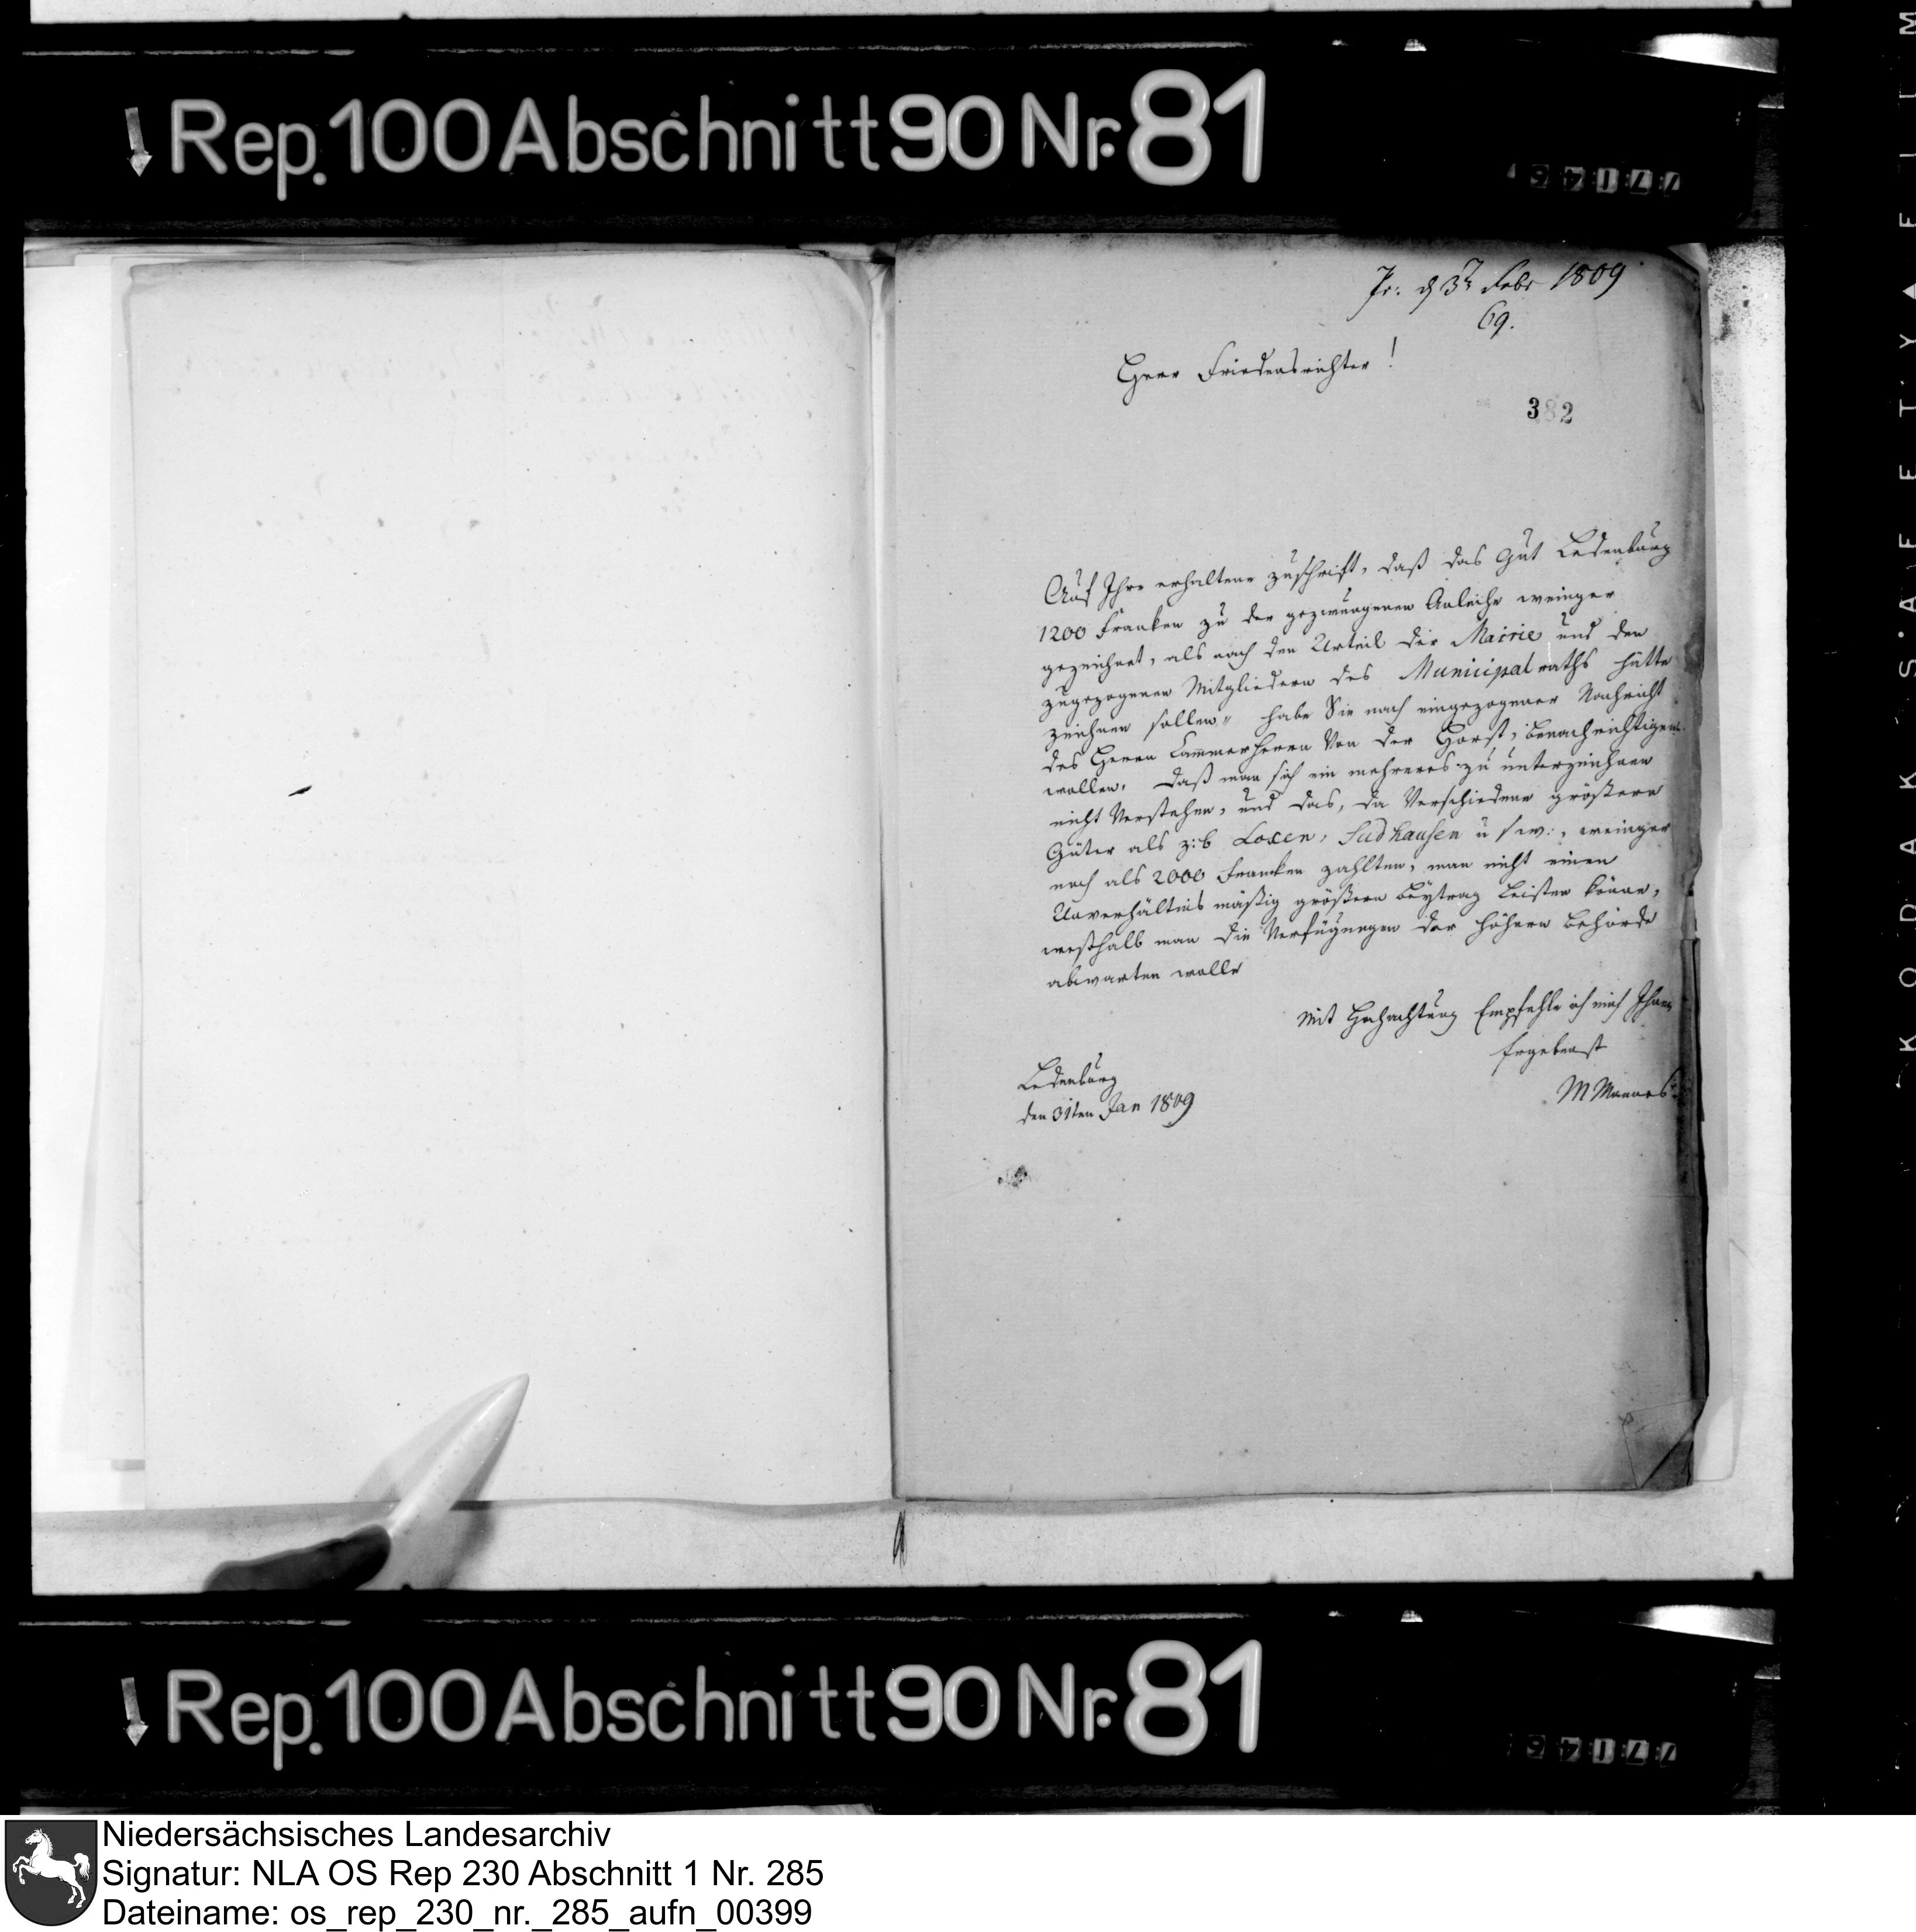 Rep. 100 Abschnitt 90 Nr. 81
Pr. d 3t Febr 1809
69.
Herr Friedensrichter!
382
Auf Ihre erhaltene zuschrift, daß das Gut Ledenburg
1200 Franken zu der gezwungenen Anleihe weiniger
gezeichnet, als nach den Urteil der Mairie und den
zugezogenen Mitgliedern des Municipalraths hätte
zeichnen sollen" habe Sie nach eingezogener Nachricht
des Herrn Cammerherrn Von der Horst, benachrichtigen
wollen, daß man sich ein mehreres zu unterzeichnen
nicht Verstehen, und das, da Verschiedene größere
Güter als z:b Loxen, Sudhausen u sw:, weiniger
noch als 2000 Francken zahlten, man nicht einen
Unverhältnis mäßig größern beÿtrag Leisten könne,
weßhalb man die Verfügungen der höhern behörde
abwarten wolle
Mit Hochachtung Empfehle ich mich Ihnen
Ergebenst
M Mannes
Ledenburg
den 31ten Jan 1809
Rep. 100 Abschnitt 90 Nr. 81
KODAK SAFETY FILM
Niedersächsisches Landesarchiv
Signatur: NLA OS Rep 230 Abschnitt 1 Nr. 285
Dateiname: os_rep_230_nr._285_aufn_00399